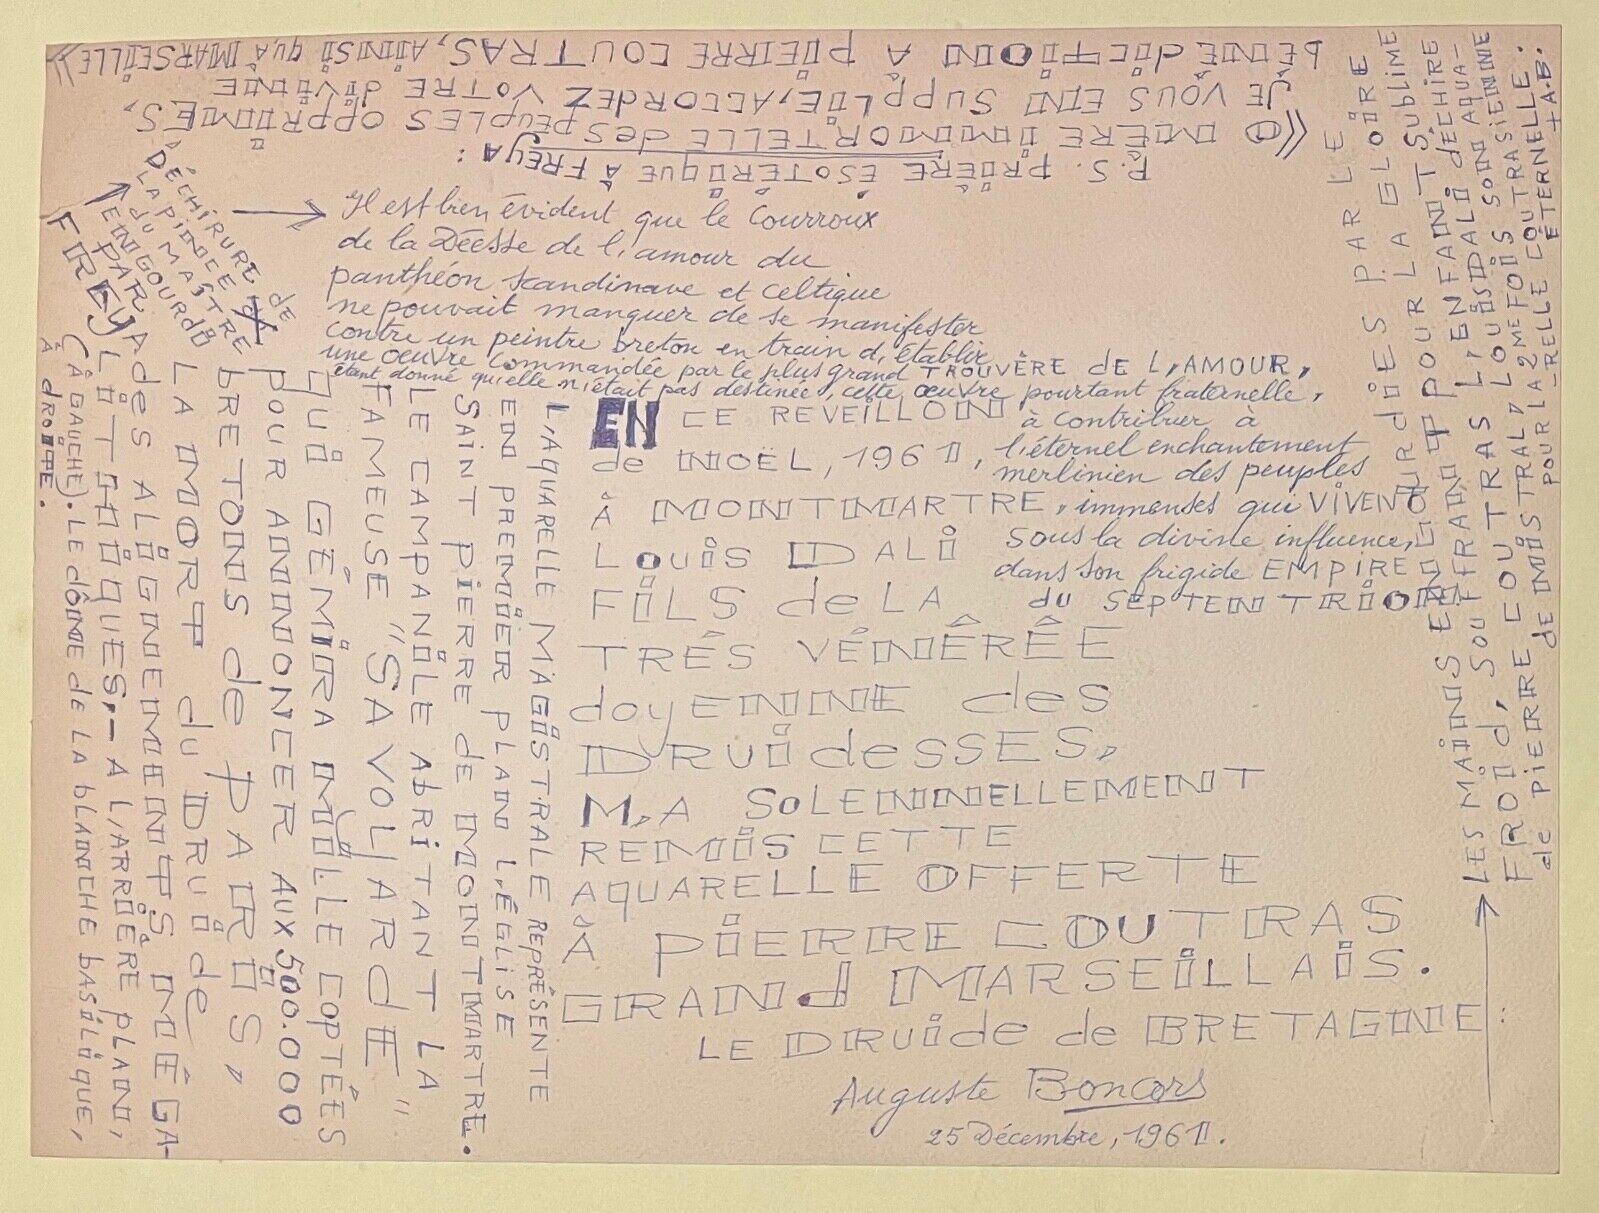 EN CE REVEILLON
de NOËL, 1961,
À MONTMARTRE,
LOUIS DALI
FILS de LA
TRÊS VÉNÊRÊE
doyENNE des
DRUidESSES,
M,A SOLENNELLEMENT
REMIS CETTE
AQUARELLE OFFERTE
À PIERRE COUTRAS
GRANd MARSEILLAIS.
LE DRUIde de BRETAGNE:
Auguste Boncors
25 Décembre, 1961.
L,AQUARELLE MAGISTRALE REPRÉSENTE
EN PREMIER PLAN L,ÉGLISE
SAINT PIERRE de MONTMARTRE.
LE CAMPANILE ABRITANT LA
FAMEUSE "SAVOYARdE"
QUI GÉMIRA MILLE COPTÉES
POUR ANNONCER AUX 500.000
bRETONS de PARIS,
LA MORT du DRUIde
PAR des ALIGNEMENTS MÉGA-
LITHIQUES,- A L,ARRIÈRE PLAN,
(À GAUCHE). LE dÔME dE LA blANCHE bASILIQUE,
À dROITE.
DÉCHIRURE de
LA PINCE
du MAÎTRE
ENGOURDI
PAR
FREYJA
Il est bien évident que le Courroux
de la Déesse de l,amour du
panthéon scandinave et celtique
ne pouvait manquer de se manifester
contre un peintre breton en train d,établir
une œuvre commandée par le plus grand TROUVÈRE dE L,AMOUR,
étant donné qu,elle n,était pas destinée, cette œuvre pourtant fraternelle,
à contribuer à
l'éternel enchantement
merlinien des peuples
immenses qui VIVENT
sous la divine influence,
dans son frigide EMPIRE
du SEPTENTRION
LES MAINS ENGOURdIES PAR LE
FROId, SOUFFRANT POUR LA GLOIRE
de PIERRE COUTRAS, L,ENFANT SUblIME
LOUIS DALI dÉCHIRE
SON AQUA-
RELLE
POUR LA 2ME FOIS
de MISTRAL, COUTRASIENNE
POUR LA
ÉTERNELLE.
+ A.B.
P.S. PRIÈRE ÉSOTÉRIQUE À FREYJA:
« O MÈRE IMMORTELLE des PEUPLES OPPRIMÉS,
JE VOUS EN SUPPLIE, ACCORDEZ VOTRE dIVINE
bÉNÉdICTION A PIERRE COUTRAS, AINSI QU,À MARSEILLE »